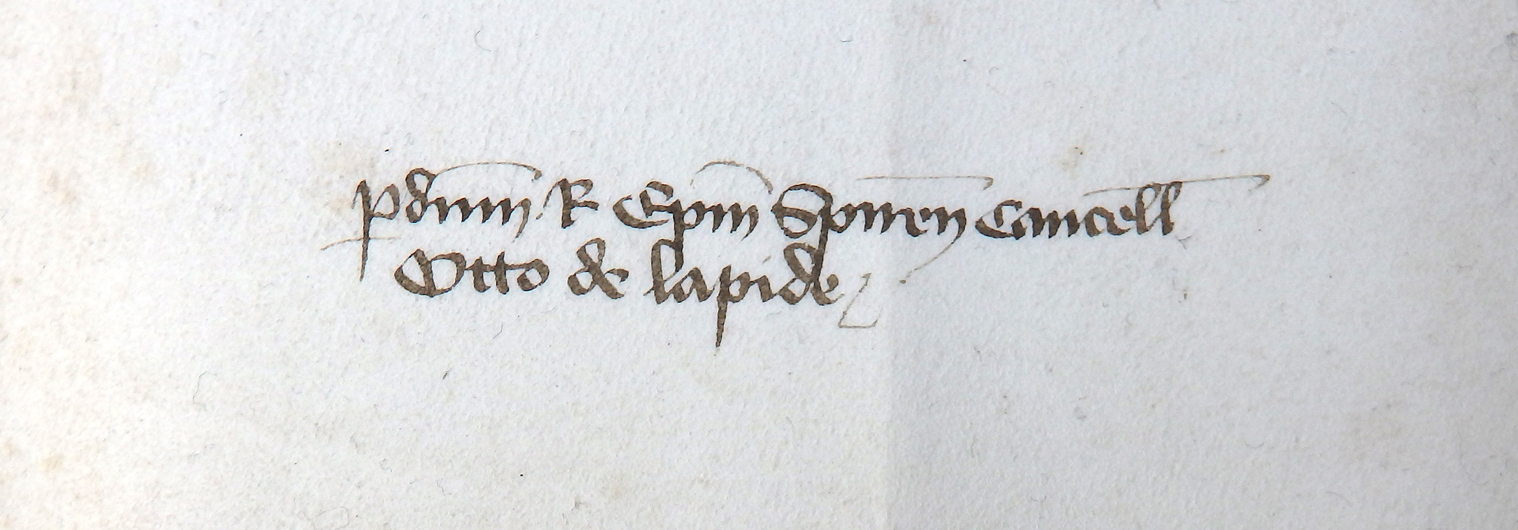 p d̄num R Ep̄m Spiren̄ Cancell̄
Otto de lapide